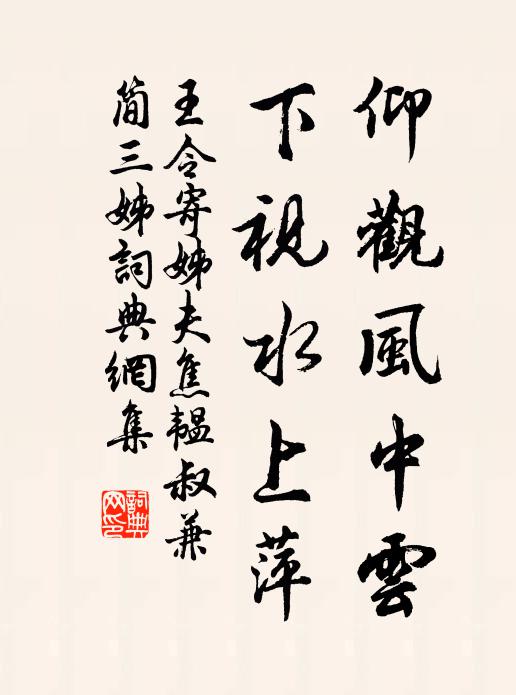 仰觀風中雲
下視水上萍
王令寄姊夫焦韞叔兼
簡三姊詞典網集
詞典網印